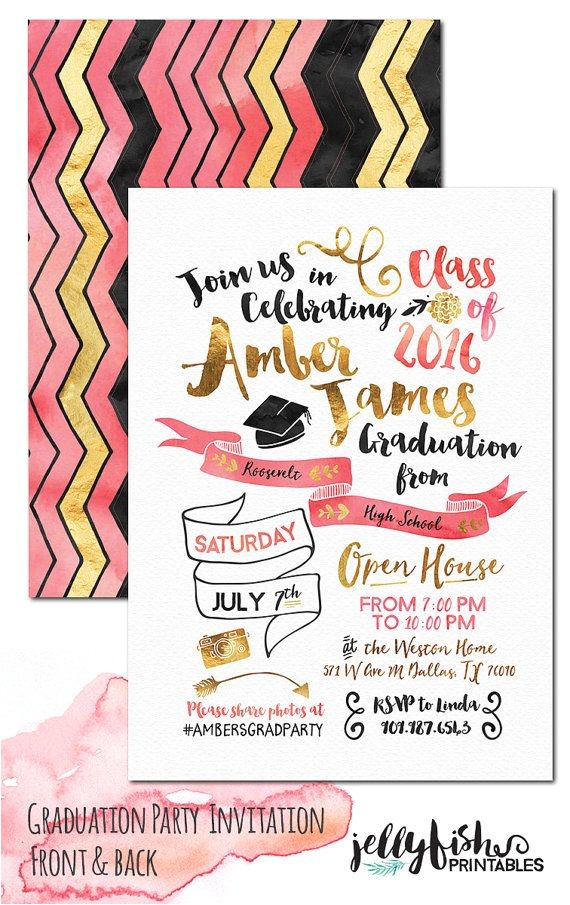 Join us in
Celebrating
Class
of
2016
Amber
James
Graduation
from
Roosevelt
High School
SATURDAY
JULY 7th
Open House
FROM 7:00 PM
TO 10:00 PM
at the Weston Home
571 W Ave M Dallas, TX 77010
Please share photos at
#AMBERSGRADPARTY
RSVP to Linda
909.987.6543
GRADUATION PARTY INVITATION
FRONT & BACK
jellyfish
PRINTABLES